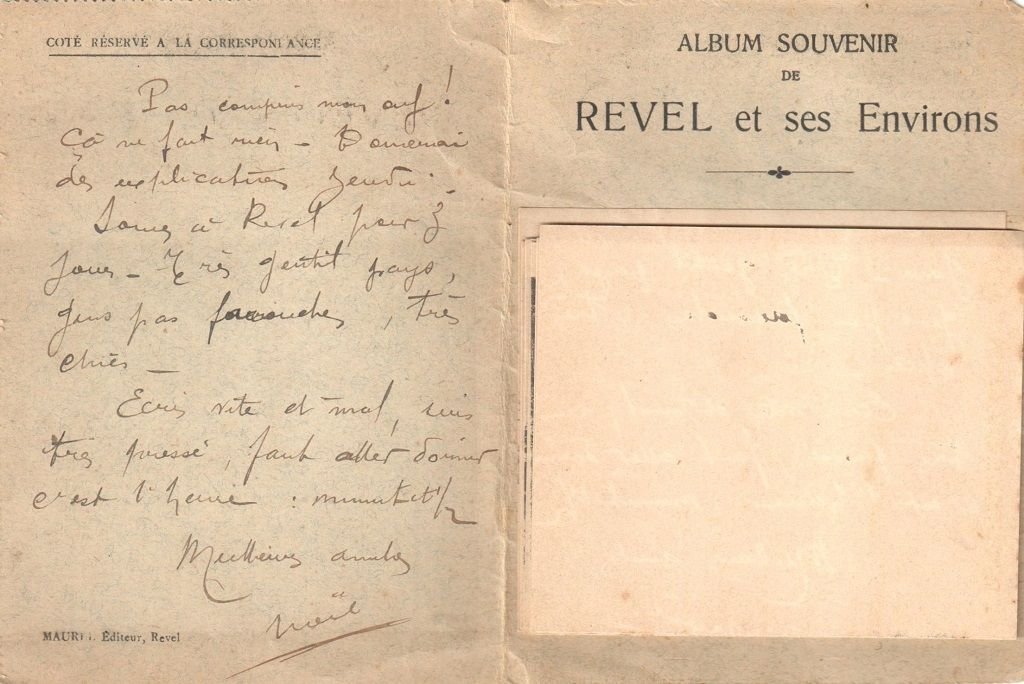 COTÉ RÉSERVÉ A LA CORRESPONDANCE
Pas compris mon
Ça ne fait rien - Donnerai
des explications Jeudi.
Sommes à Revel pour 3
jours - Très gentil pays,
gens pas farouches, très
chics -
Ecris vite et mal, suis
très pressé, faut aller dormir
c'est l'heure : minuit et 1/2
Meilleures amitiés
Noël
MAUREL Éditeur, Revel
ALBUM SOUVENIR
DE
REVEL et ses Environs